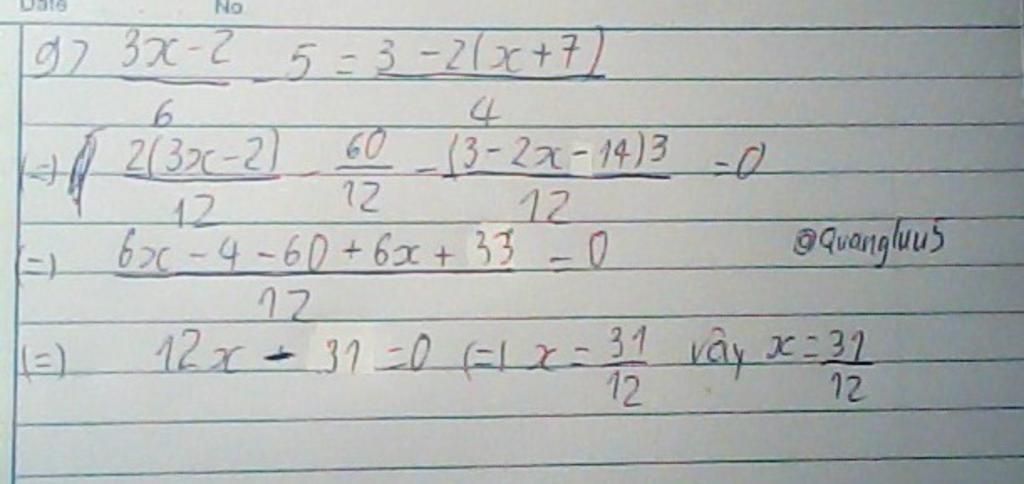 Date No
g) \frac{3x-2}{6} - 5 = \frac{3-2(x+7)}{4}
(=) \frac{2(3x-2)}{12} - \frac{60}{12} - \frac{(3-2x-14)3}{12} = 0
(=) \frac{6x-4-60+6x+33}{12} = 0 @Quangluu5
(=) 12x - 31 = 0 (=) x = \frac{31}{12} vậy x = \frac{31}{12}